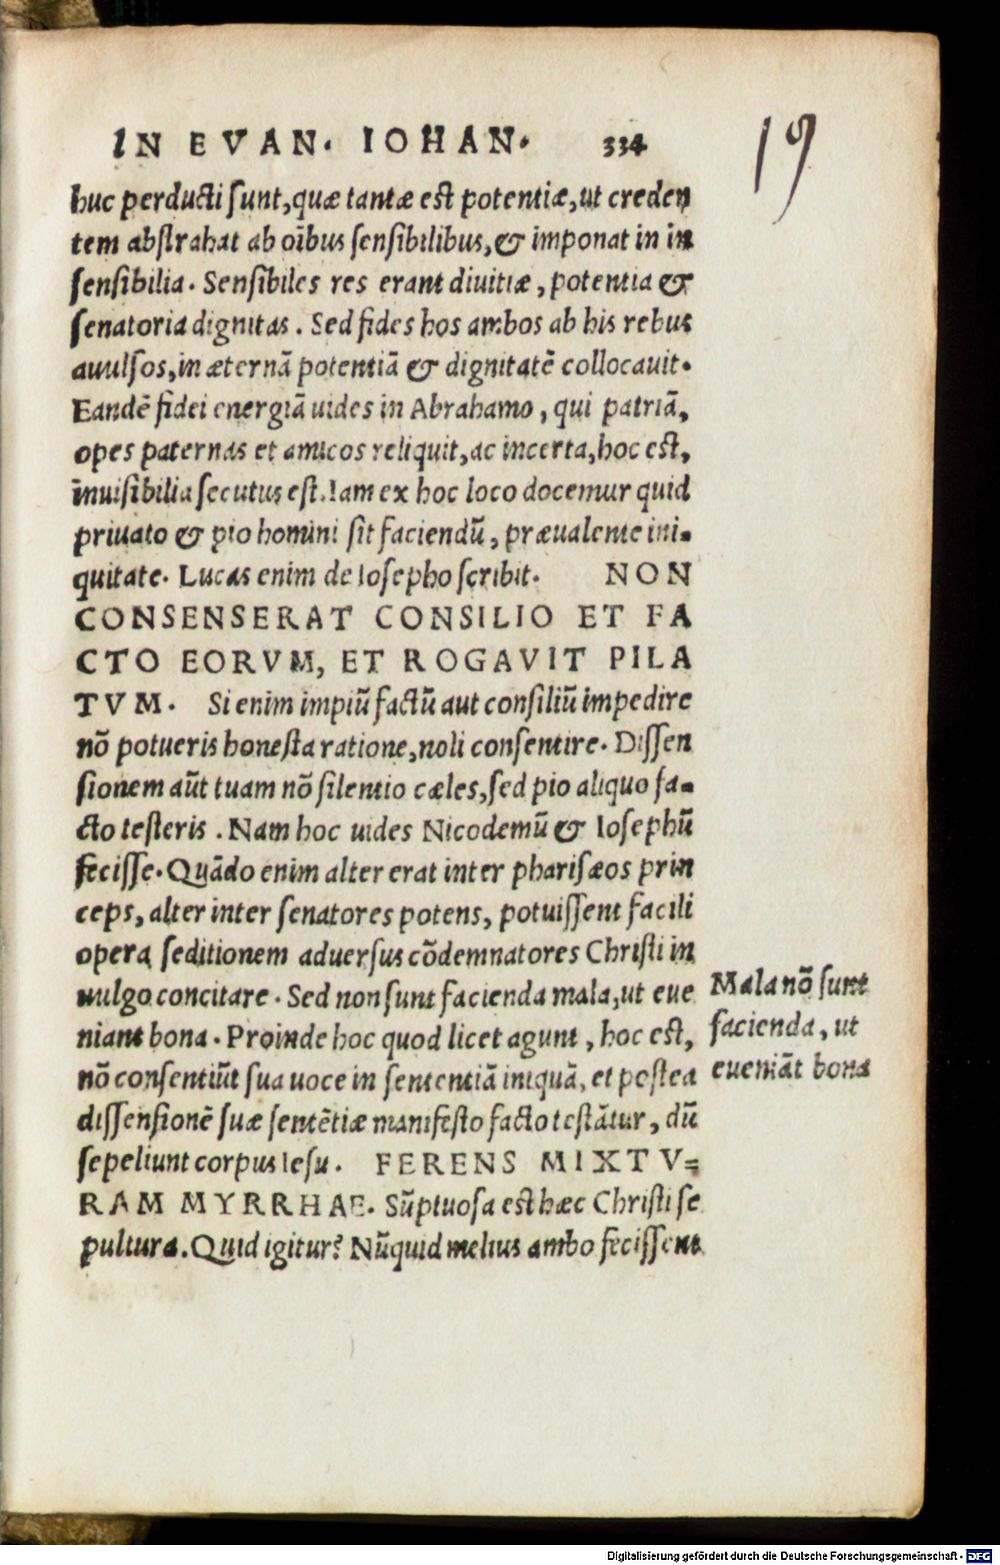 IN EVAN. IOHAN. 334
19
huc perducti sunt, quæ tantæ est potentiæ, ut creden
tem abstrahat ab oībus sensibilibus, & imponat in in
sensibilia. Sensibiles res erant divitiæ, potentia &
senatoria dignitas. Sed fides hos ambos ab his rebus
avulsos, in æternā potentiā & dignitatē collocavit.
Eandē fidei energiā uides in Abrahamo, qui patriā,
opes paternas et amicos reliquit, ac incerta, hoc est,
inuisibilia secutus est. Iam ex hoc loco docemur quid
priuato & pio homini sit faciendū, præualente ini-
quitate. Lucas enim de Iosepho scribit. NON
CONSENSERAT CONSILIO ET FA
CTO EORVM, ET ROGAVIT PILA
TVM. Si enim impiū factū aut consiliū impedire
nō potueris honesta ratione, noli consentire. Dissen
sionem aūt tuam nō silentio cæles, sed pio aliquo fa-
cto testeris. Nam hoc uides Nicodemū & Iosephū
fecisse. Quādo enim alter erat inter pharisæos prin
ceps, alter inter senatores potens, potuissent facili
opera seditionem adversus cōdemnatores Christi in
uulgo concitare. Sed non sunt facienda mala, ut eue
niant bona. Proinde hoc quod licet agunt, hoc est,
nō consentiūt sua uoce in sententiā iniquā, et postea
dissensionē suæ sentētiæ manifesto facto testātur, dū
sepeliunt corpus Iesu. FERENS MIXTV=
RAM MYRRHAE. Sūptuosa est hæc Christi se
pultura. Quid igitur? Nūquid melius ambo fecissent
Mala nō sunt
facienda, ut
eveniāt bona
Digitalisierung gefördert durch die Deutsche Forschungsgemeinschaft - DFG